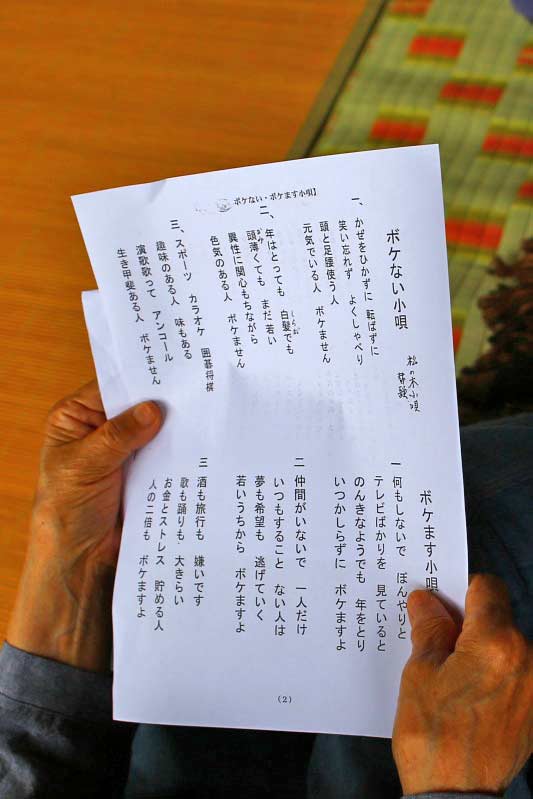 ボケない・ボケます小唄】
ボケない小唄
松の木小唄
一、かぜをひかずに 転ばずに
笑い忘れず よくしゃべり
頭と足腰使う人
元気でいる人 ボケません
二、年はとっても 白髪でも
頭薄くても まだ若い
異性に関心もちながら
色気のある人 ボケません
三、スポーツ カラオケ 囲碁将棋
趣味のある人 味もある
演歌歌って アンコール
生き甲斐ある人 ボケません
ボケます小唄
一 何もしないで ぼんやりと
テレビばかりを 見ていると
のんきなようでも 年をとり
いつかしらずに ボケますよ
二 仲間がいないで 一人だけ
いつもすること ない人は
夢も希望も 逃げていく
若いうちから ボケますよ
三 酒も旅行も 嫌いです
歌も踊りも、大きらい
お金とストレス 貯める人
人の二倍も ボケますよ
(2)